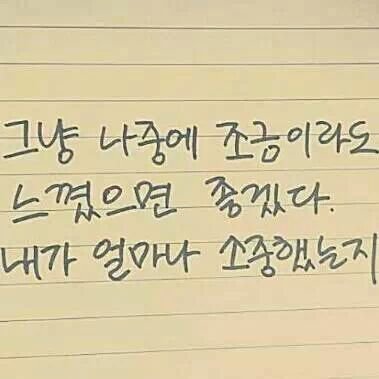 그냥 나중에 조금이라도
느꼈으면 좋겠다.
내가 얼마나 소중했는지